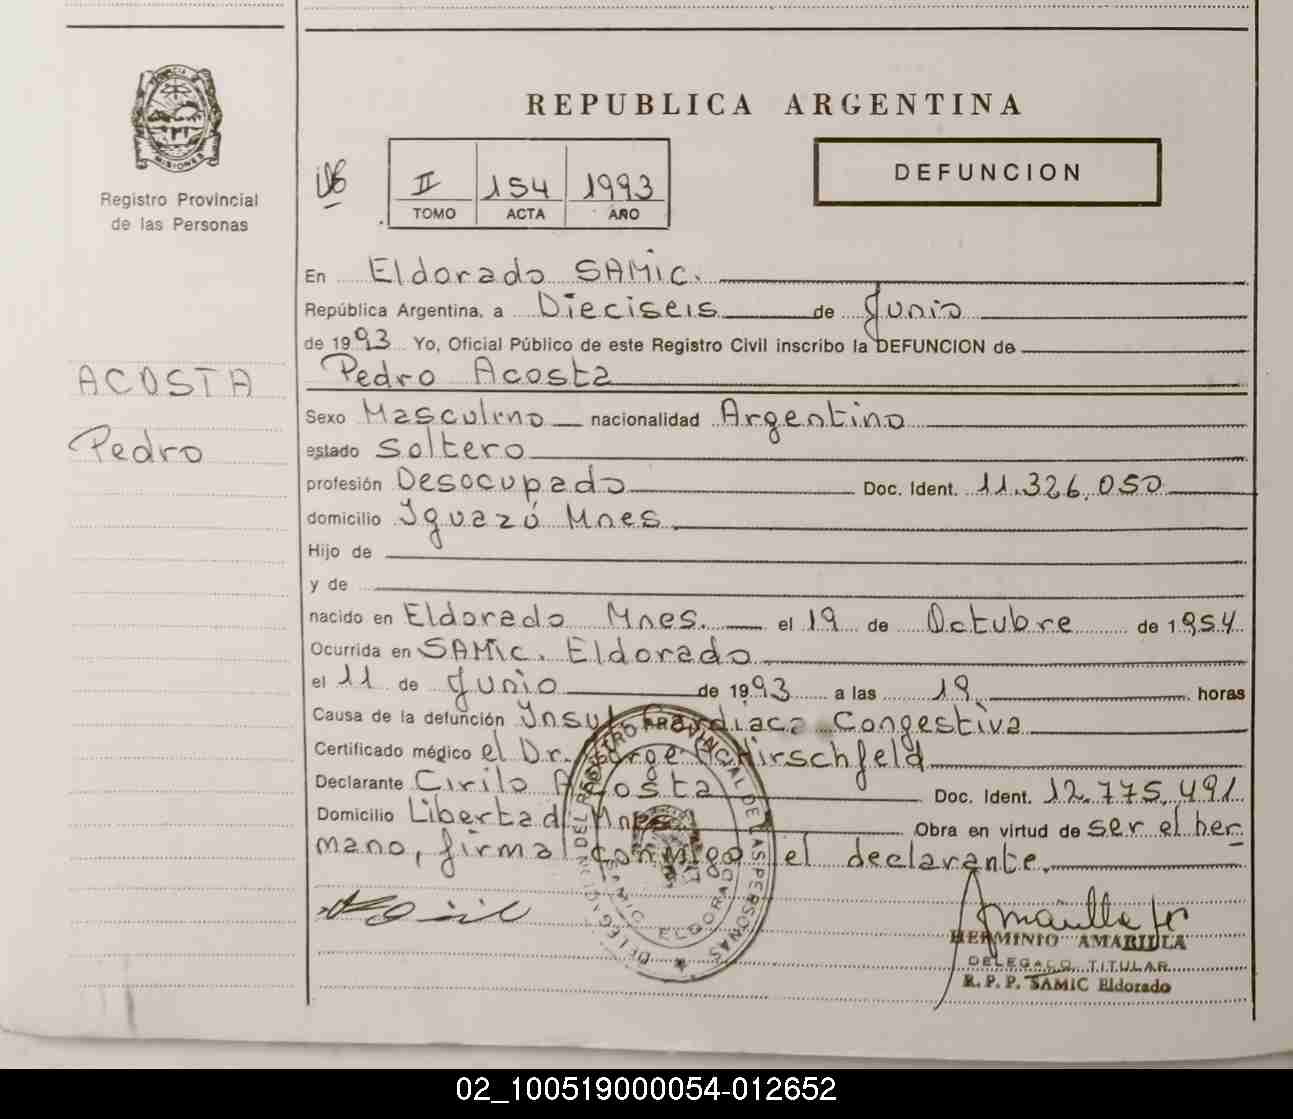 REPUBLICA ARGENTINA
PROVINCIA DE MISIONES
Registro Provincial
de las Personas
II 154 1993
TOMO ACTA AÑO
DEFUNCION
En Eldorado SAMIC.
República Argentina, a Dieciseis de Junio
de 1993 Yo, Oficial Público de este Registro Civil inscribo la DEFUNCION de
ACOSTA
Pedro
Pedro Acosta
Sexo Masculino nacionalidad Argentino
estado Soltero
profesión Desocupado Doc. Ident. 11.326.050
domicilio Iguazú Mnes
Hijo de
y de
nacido en Eldorado Mnes. el 19 de Octubre de 1954
Ocurrida en SAMIC. Eldorado
el 11 de Junio de 1993 a las 19 horas
Causa de la defunción Insuf Cardiaca Congestiva
Certificado médico el Dr. Jorge Hirschfeld
Declarante Cirilo Acosta Doc. Ident. 12.775.491
Domicilio Libertad Mnes Obra en virtud de ser el her
mano, firma conmigo el declarante.
DELEGACION DEL REGISTRO PROVINCIAL DE LAS PERSONAS
SAMIC ELDORADO
HERMINIO AMARILLA
DELEGADO TITULAR
R. P. P. SAMIC Eldorado
02_100519000054-012652